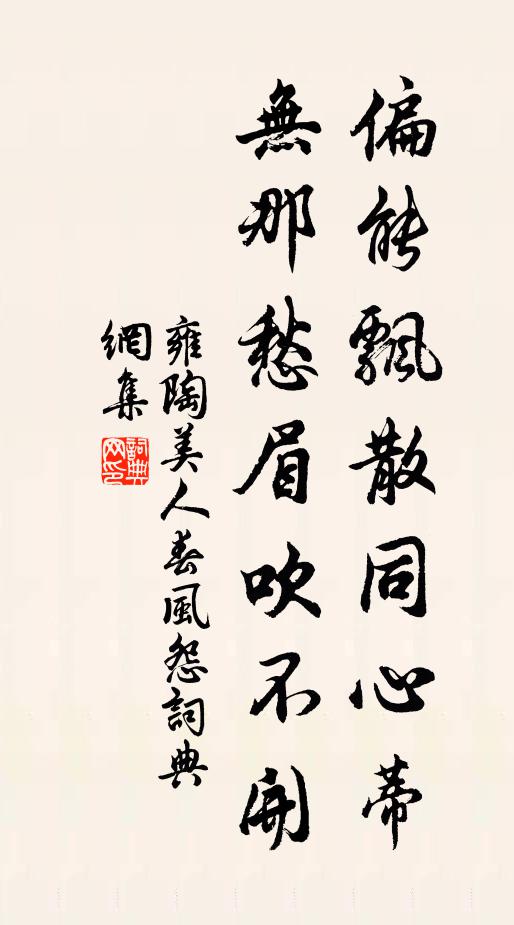 偏能飄散同心蒂
無那愁眉吹不開
雍陶美人春風怨詞典
網集
詞典網印